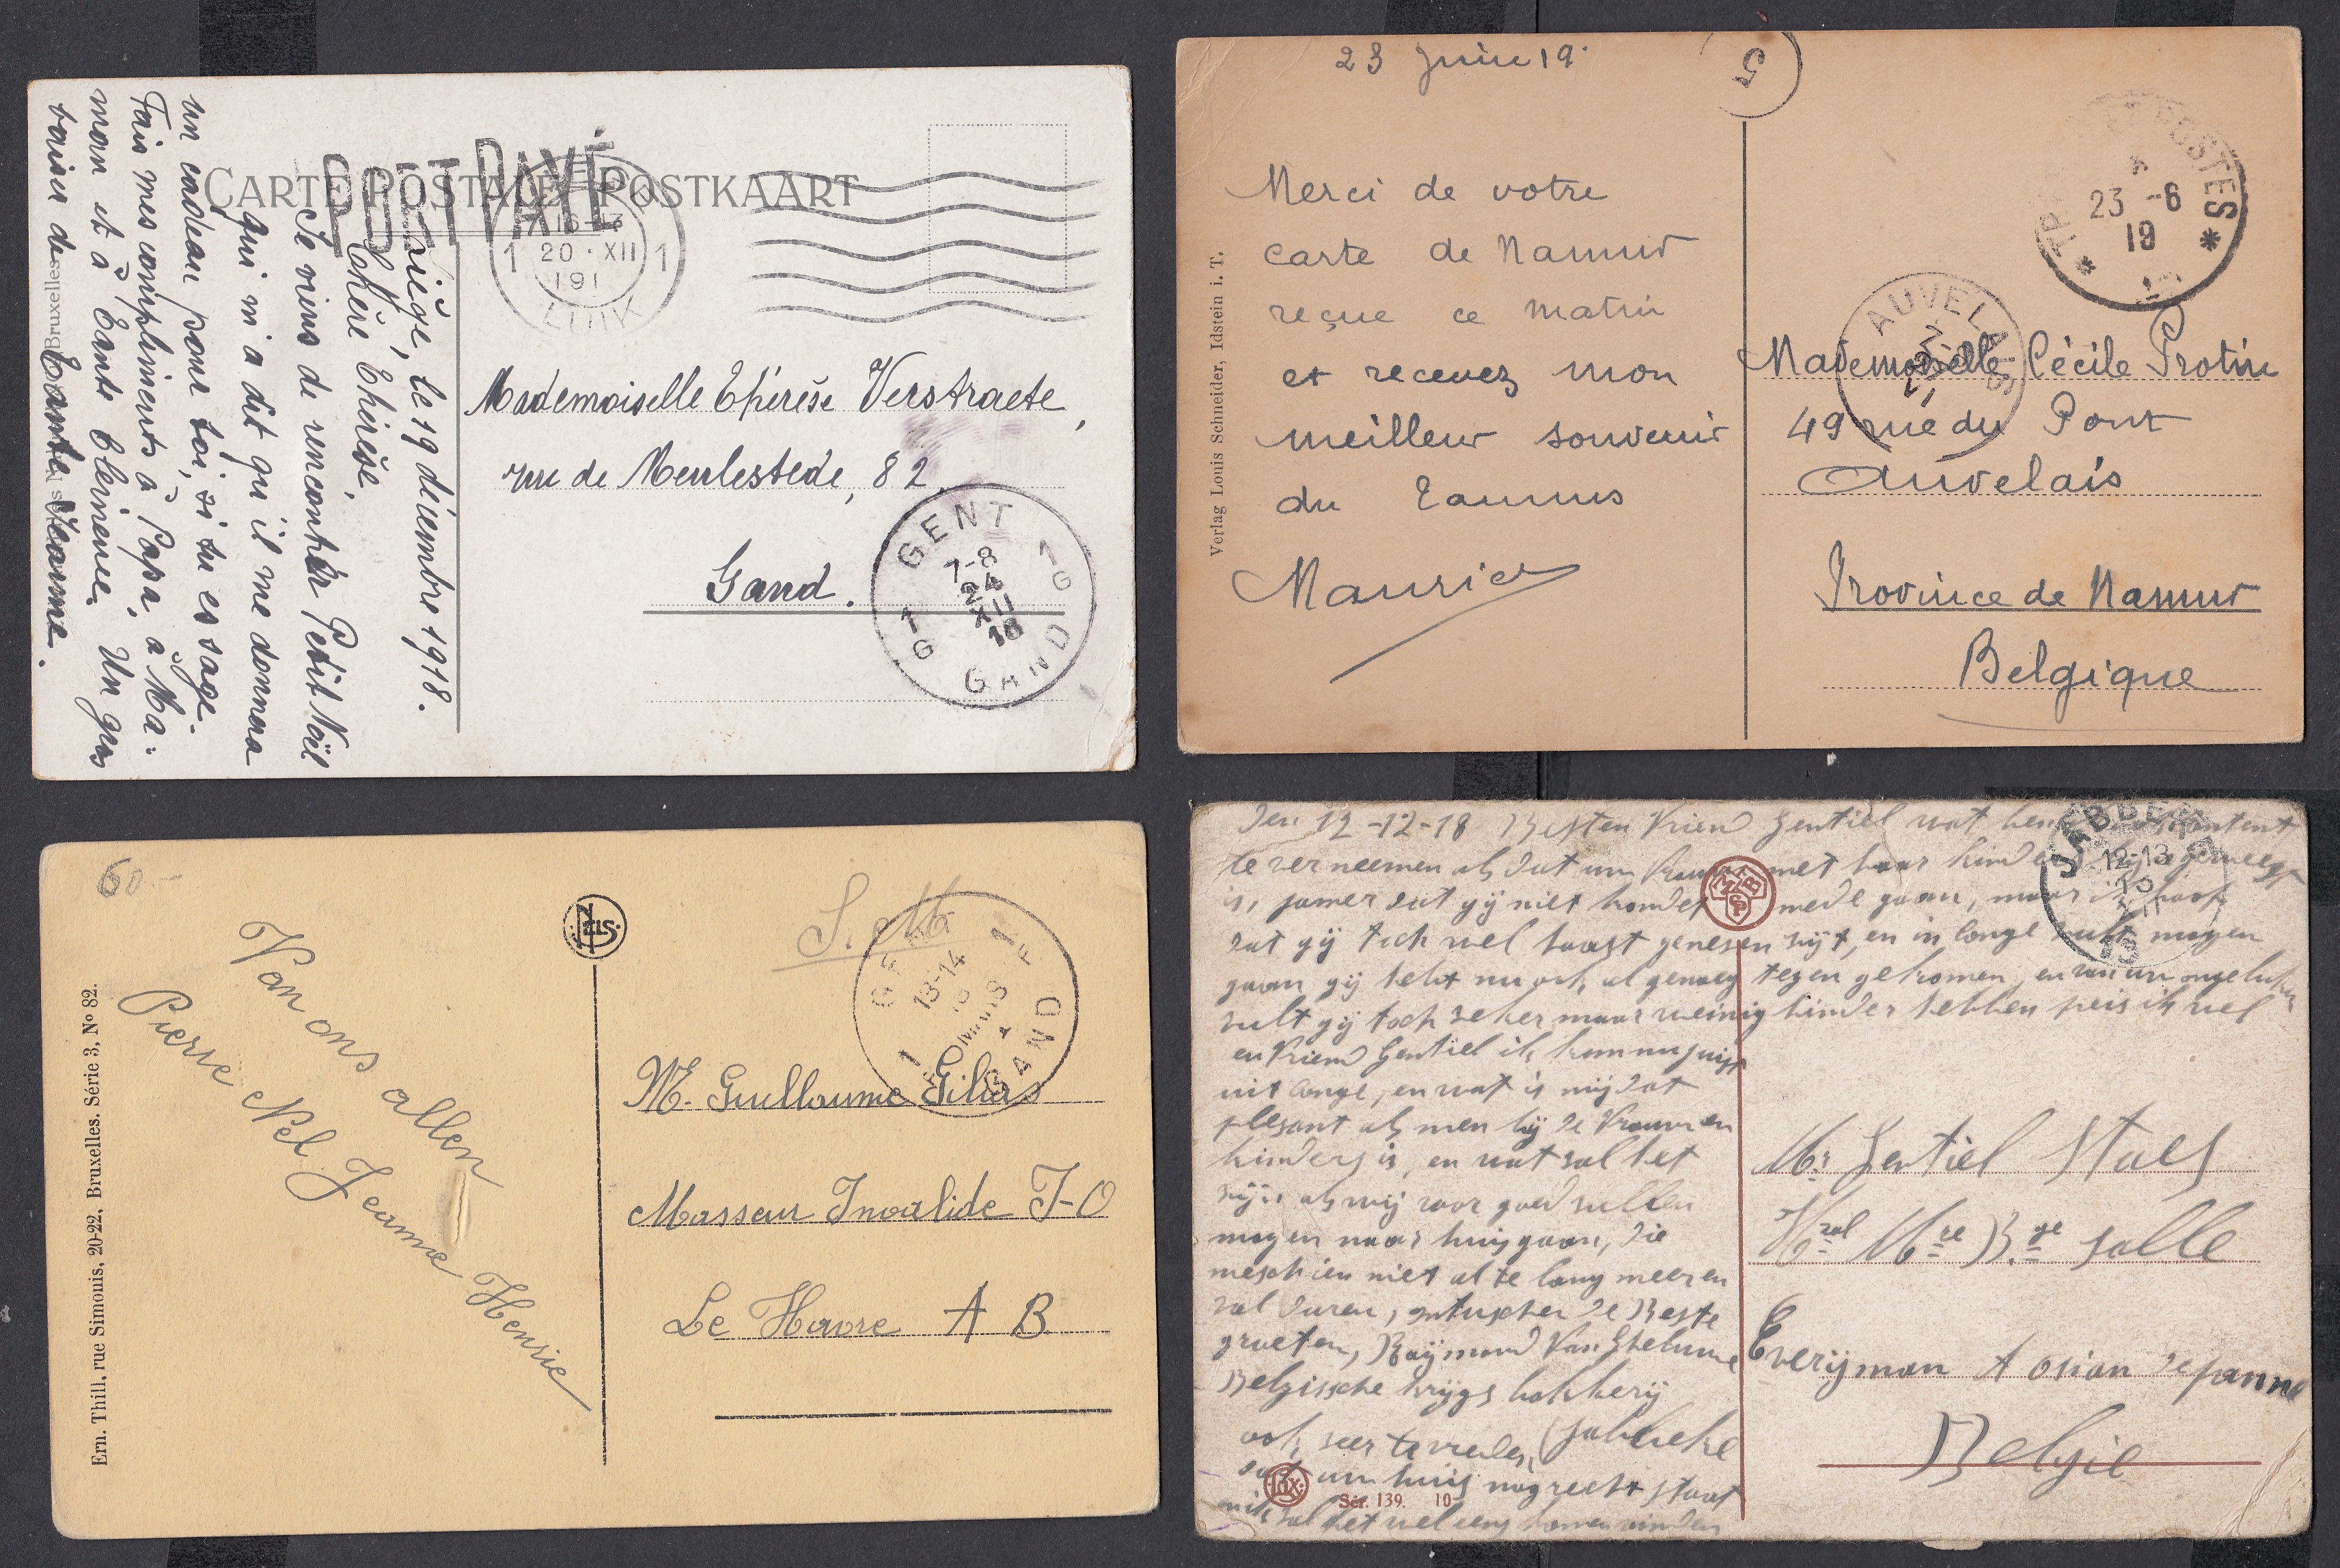 CARTE POSTALE POSTKAART
PORT PAYÉ
20 · XII
191
LUIK
1 1
Liège, le 19 décembre 1918.
Chère Thérèse,
Je viens de rencontrer Petit Noël
qui m'a dit qu'il me donnera
un cadeau pour toi, si tu es sage.
Fais mes compliments à Papa, à Ma-
man et à Tante Clémence. Un gros
baiser de Tante Jeanne.
Bruxelles
Mademoiselle Thérèse Verstraete,
rue de Meulestede, 82,
Gand.
GENT
7-8
24
XII
18
GAND
1 G
1 G
23 Juin 19.
5
Merci de votre
carte de Namur
reçue ce matin
et recevez mon
meilleur souvenir
du Taunus
Maurice
Verlag Louis Schneider, Idstein i. T.
POSTES
23 -6
19
AUVELAIS
Mademoiselle Cécile Protin
49 rue du Pont
Auvelais
Province de Namur
Belgique
60-
NELS
S. M.
13-14
GAND
Van ons allen
Pierre Nel Jeanne Henrie
Ern. Thill, rue Simonis, 20-22, Bruxelles. Série 3, No 82.
M. Guillaume Giliars
Masseur Invalide I-O
Le Havre A B
Den 12-12-18 Besten Vriend Gentiel wat ben content
te verneemen als dat uw Vrouw met haar kinders
is, jamer dat gij niet kondet mede gaan, maar ik hoop
dat gij toch wel haast genesen zijt, en in longé zult mogen
gaan gij hebt nu ook al genoeg tegen gekomen, en van uw ongelukken
zult gij toch zeker maar weinig hinder hebben peis ik wel
en Vriend Gentiel ik kom nu juist
uit congé, en wat is mij dat
plesant als men bij de Vrouw en
kinders is, en wat zal het
zijn als wij voor goed zullen
mogen naar huis gaan, die
meschien niet al te lang meer en
zal duren, ontuschen de Beste
groeten, Raÿmond Van
Belgische krijgs bakkerij
Jabbeke
ook zeer te vreden
dat uw huis nog recht staat
zal het wel eens komen vinden
JABBEKE
12-13
Mr Gentiel Staes
Hzal Mre Bge salle
Everÿman A osian de panne
België
Sér. 139. 10